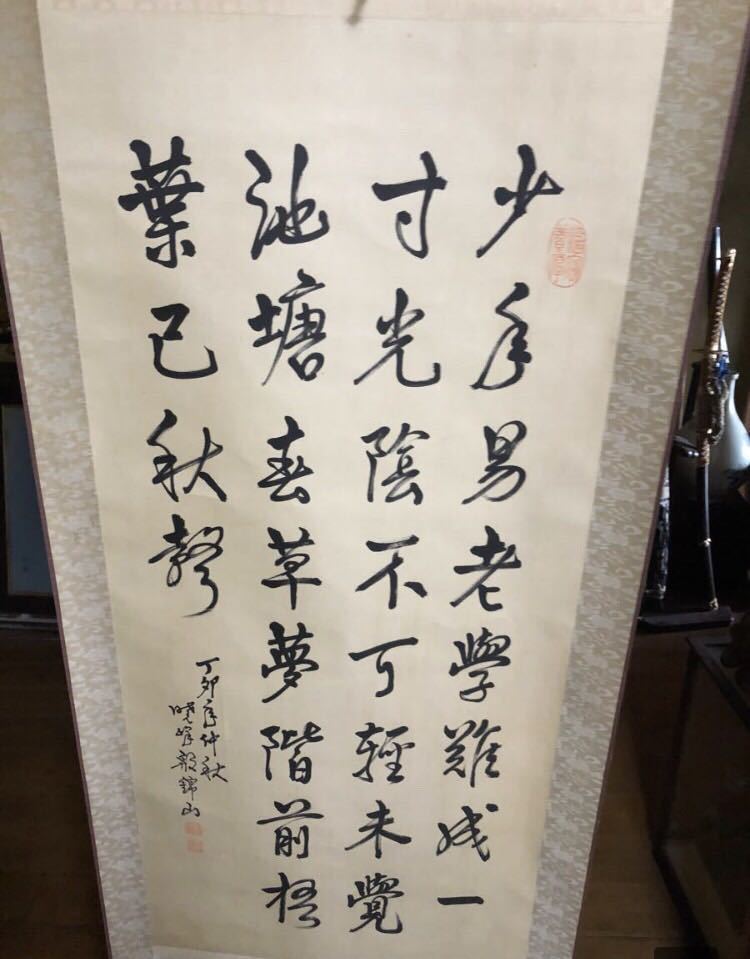 少年易老學難成一
寸光陰不可輕未覺
池塘春草夢階前梧
葉已秋聲
丁卯年仲秋
曉峰 錦山